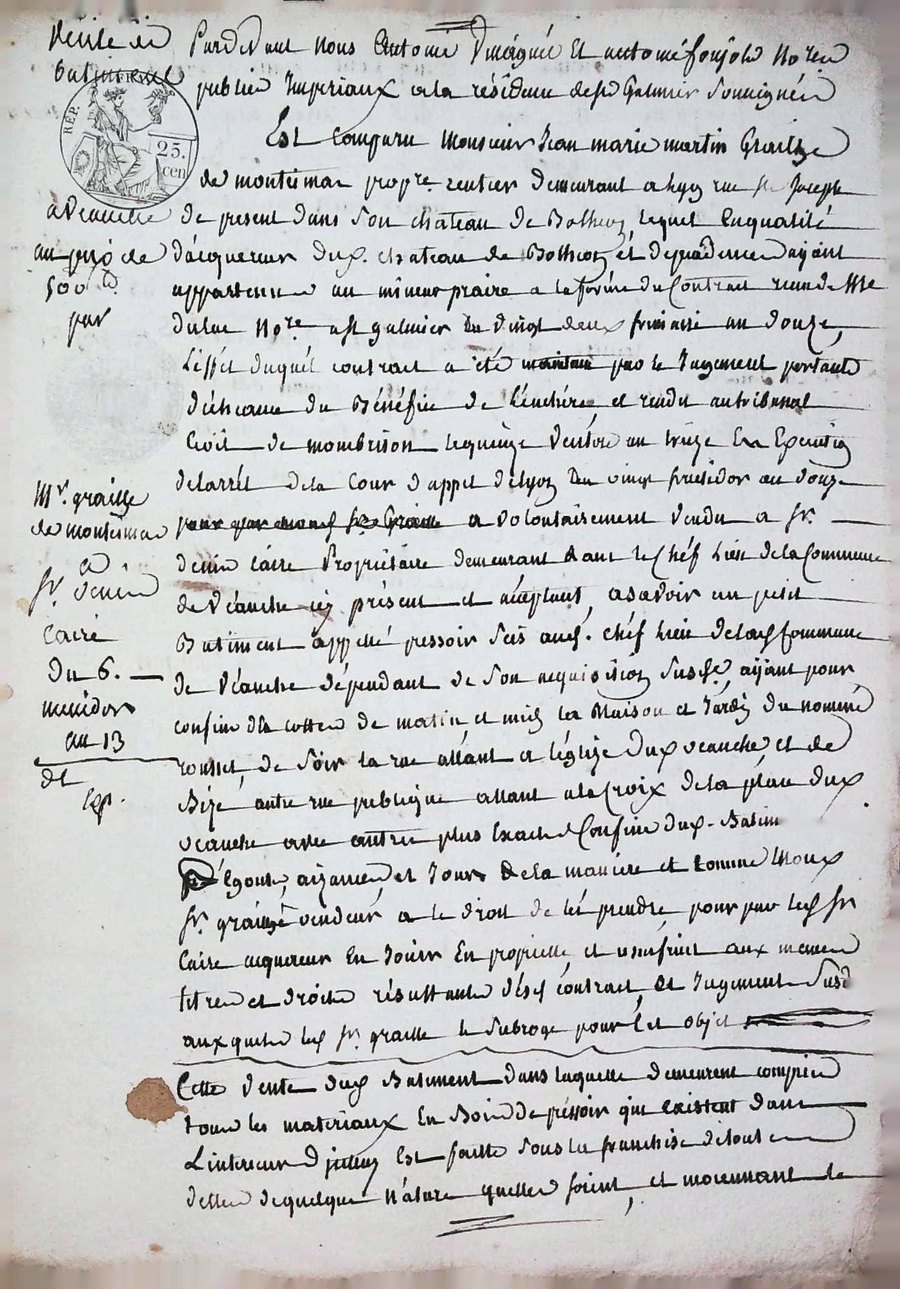 Vente de
batiment
a Veauche
au prix de
500 ᵗᵈ
par
Mr. graille
de montaimar
a
Sr. Denis
Caire
du 6.
messidor
an 13
REP.
25.
cen
Pardevant Nous Antoine et antoine foujols Nores
publics Imperiaux a la résidence de St Galmier Soussignés
Est Comparu Monsieur Jean marie martin Graille
de montaimar propre. rentier demeurant a Lyon rue St. Joseph
de present dans son chateau de Bothéon lequel En qualité
d'acquereur dud. chateau de Bothéon et dependances ayant
appartenu au mineur praire a la forme du Contract reçu de Me
dulac Nore. a St galmier Du vingt deux frimaire an douze,
L'effet duquel contract a été maintenu par le Jugement portant
déchéance du Bénéfice de l'enchère et rendu au tribunal
Civil de mombrison le quinze Ventose an treize En Execution
de larrêt de la Cour d'appel de lyon Du vingt fructidor an Douze
a Volontairement Vendu a Sr.
denis Caire Propriétaire demeurant dans le Chéf Lieu de la Commune
de Véauche icy présent et acceptant, a savoir un petit
Batiment appellé pressoir Scis aud. chéf lieu de lad. Commune
de Véauche dépendant de Son acquisition Susd. ayant pour
confins des cottes de matin et midy les Maison et Jardin du nommé
rousset, de Soir la rue allant a l'église dud. veauche et de
Bize autre rue publique allant a la Croix de la place dud.
veauche avec autres plus Exacts Confins dud. Batim
Egouts, aizances et Jours de la maniere et comme
Sr. graille vendeur, a le droit de les prendre pour par led. Sr
Caire acquereur En Jouir En propriete et usufruit aux memes
titres et droits résultants desd. contract, et Jugement Susd
auxquels led. Sr. graille le Subroge pour Cet objet
Cette vente dud. Batiment dans laquelle demeurent compris
tous les materiaux En Bois de pressoir qui existent dans
L'interieur d'iceluy Est faitte sous la franchise de toutes
dettes de quelque Nature quelles soient, et moiennant le